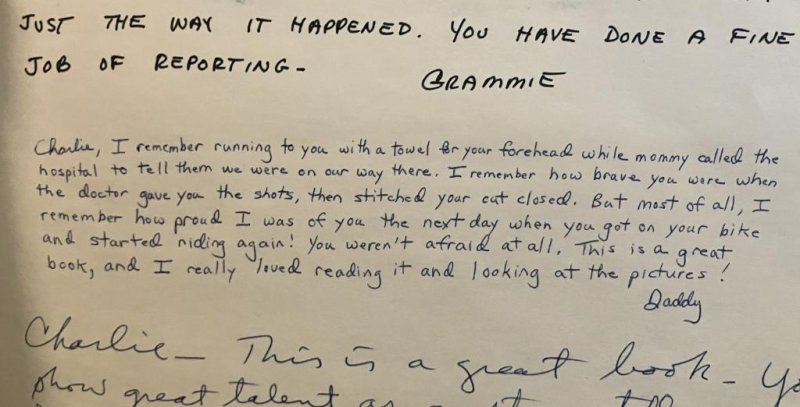 JUST THE WAY IT HAPPENED. YOU HAVE DONE A FINE
JOB OF REPORTING-
GRAMMIE
Charlie, I remember running to you with a towel for your forehead while mommy called the
hospital to tell them we were on our way there. I remember how brave you were when
the doctor gave you the shots, then stitched your cut closed. But most of all, I
remember how proud I was of you the next day when you got on your bike
and started riding again! You weren't afraid at all. This is a great
book, and I really loved reading it and looking at the pictures!
Daddy
Charlie- This is a great book-
show great talent